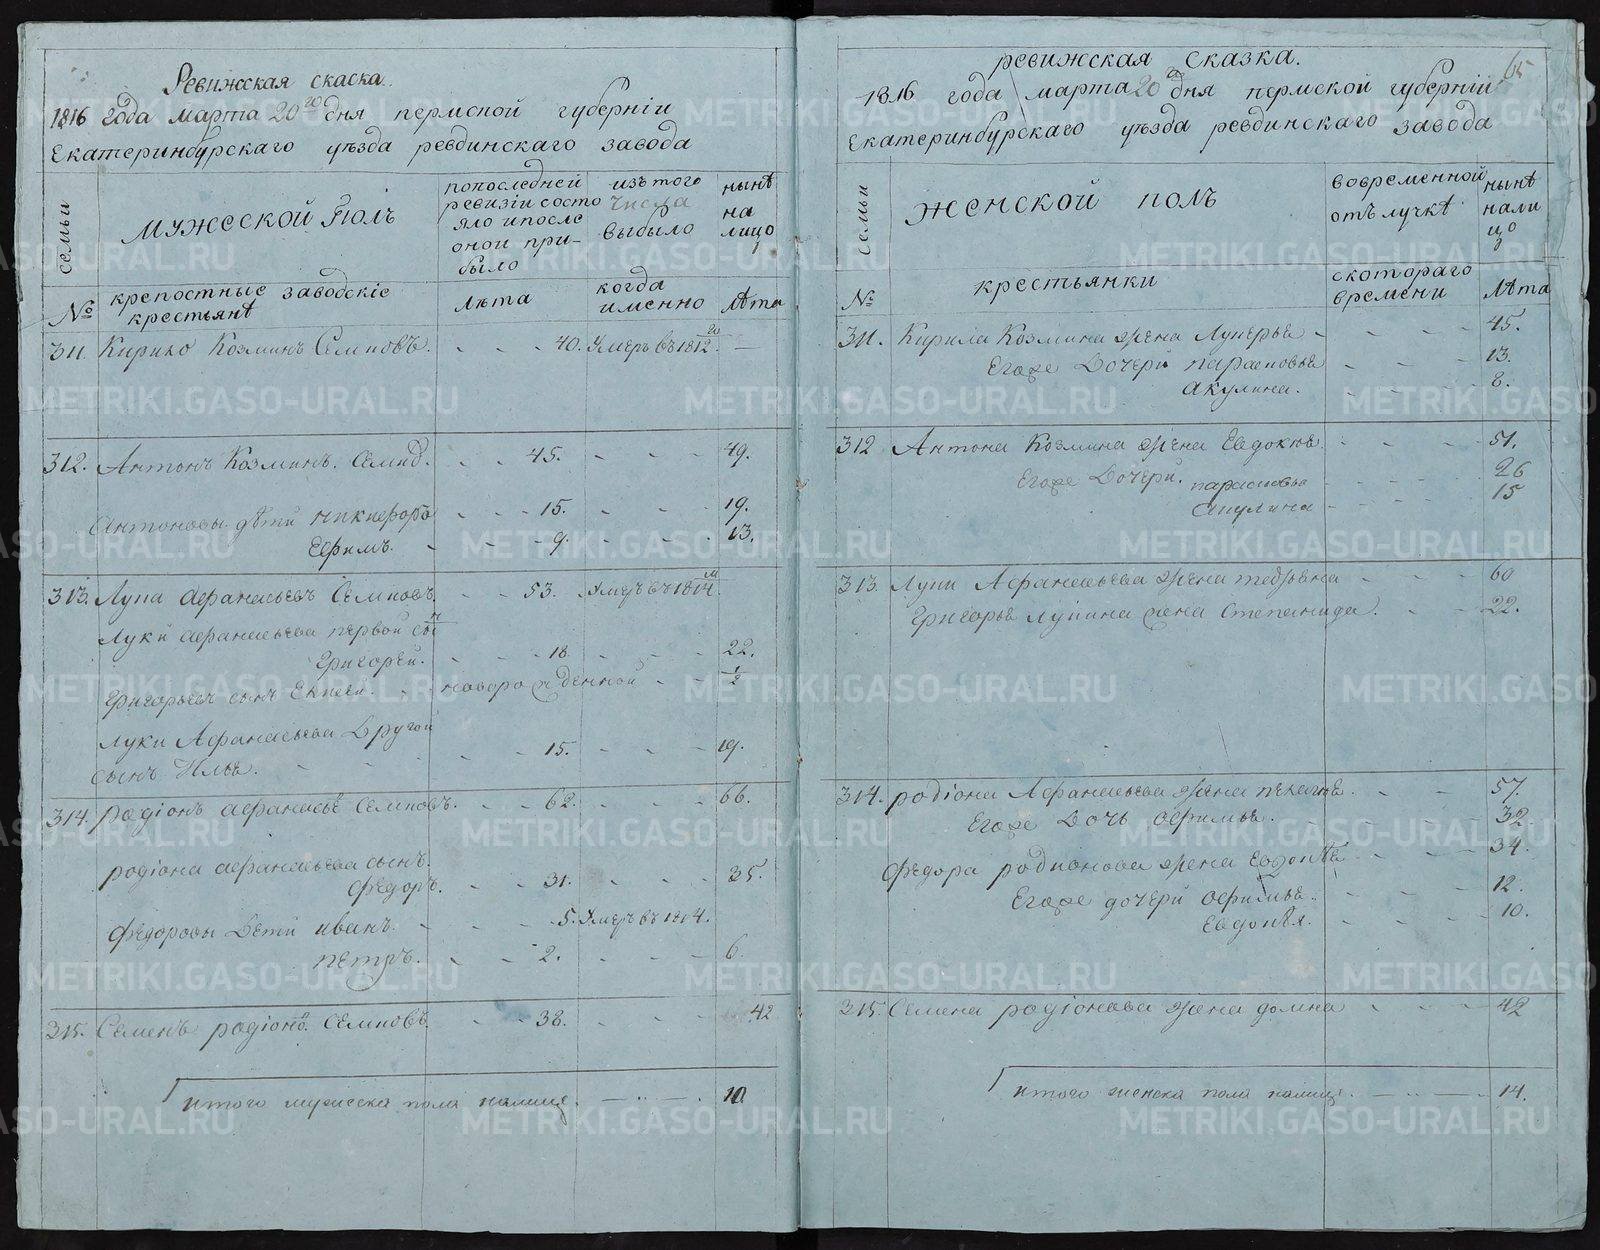 Ревижская скаска.
1816 года марта 20го дня пермской губернiи
Екатеринбурскаго уѣзда ревдинскаго завода
семьи
мужеской полъ
попоследней ревизiи состояло ипосле оной прибыло
изъ того числа выбыло
нынѣ на лицо
№
крепостные заводскiе крестьянѣ
лѣта
когда именно
лѣта
311. Кирило Козминъ Семковъ. - - - 40. Умеръ въ 1812го. —
312. Антонъ Козминъ. Семко. - - 45. - - - 49.
Антоновы дѣти никифоръ - - - 15. - - - 19.
Ефимъ. - - - 9. - - - 13.
313. Лука афанасьевъ Семковъ. - - 53. Умеръ въ 1814м.
Луки афанасьева первой сын
григорей. - - - 18 - - - 22.
григорьевъ сынъ Евсей. - новорожденной - - 1/2
Луки Афанасьева Другой
сынъ Илья. - - - 15. - - - 19.
314. родiонъ афанасьев Семковъ. - - 62. - - - 66.
родiона афанасьева сынъ.
федоръ. - - - 31. - - - 35.
федоровы Дети иванъ. - - - 5. Умеръ въ 1814.
петръ. - - - 2. - - - 6.
315. Семенъ родiоно. Семковъ. - - 38. - - - 42
итого мужеска пола налице. — .. — . 10
65
ревижская сказка.
1816 года марта 20го дня пермской губернiи
Екатеринбурскаго уѣзда ревдинскаго завода
семьи
женской полъ
вовременной отълучкѣ
нынѣ налицо
№
крестьянки
скотораго времени
Лѣта
311. Кирила Козмина жена Лукерья - - - 45.
Егоже Дочери парасковья - - - 13.
акулина. - - - 8.
312 Антона Козмина жена Евдокия - - - 51.
Егоже Дочери. парасковья - - - 26
акулина - - - 15
313. Луки Афанасьева жена - - - 60
Григорья Лукина жена Степанида. - - - 22.
314. родiона Афанасьева жена пелагея. - - 57.
Егоже Дочь офимья. - - - 32.
федора родионова жена Евдокѣя - - - 34.
Егоже дочери офимья. - - - 12.
Евдокѣя. - - - 10.
315. Семена родiонова жена домна - - - 42
итого женска пола налице. — .. — . 14.
METRIKI.GASO-URAL.RU